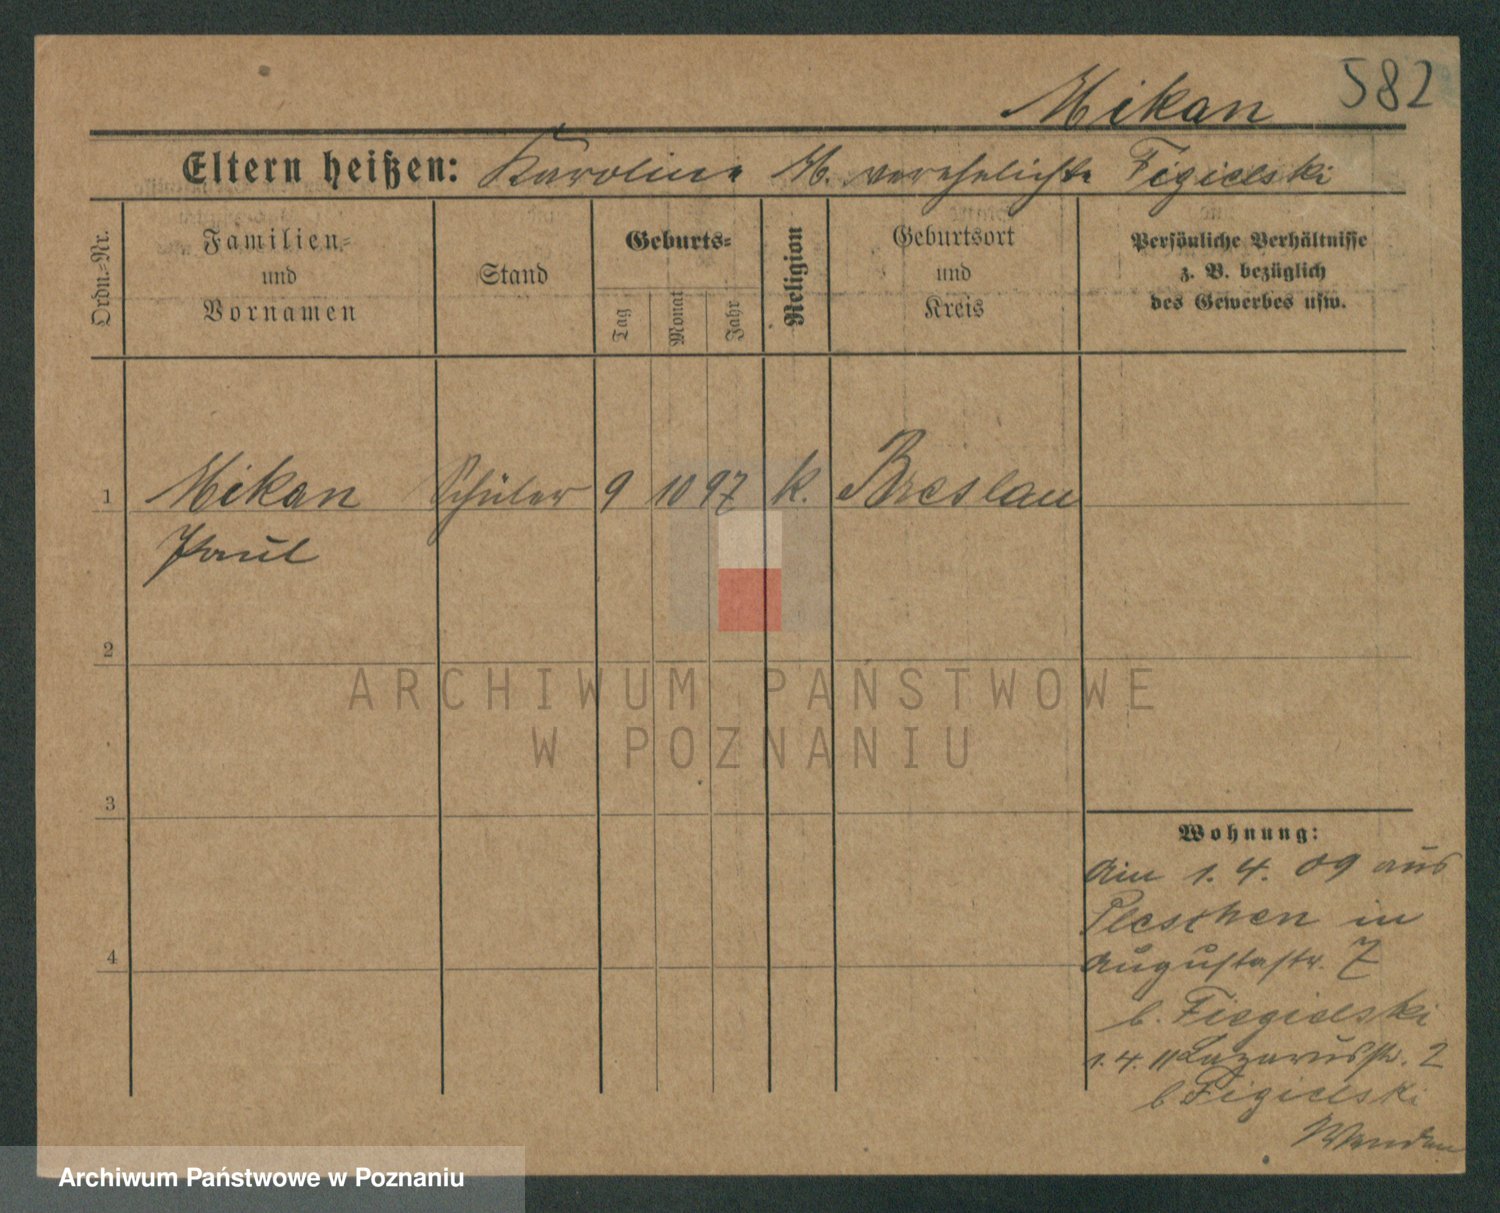 582
Mikan
Eltern heißen: Karoline M. verehelichte Figielski
Ordn.=Nr.
Familien=
und
Vornamen
Stand
Geburts=
Tag
Monat
Jahr
Religion
Geburtsort
und
Kreis
Persönliche Verhältnisse
z. B. bezüglich
des Gewerbes usw.
1 Mikan Schüler 9 10 97 k. Breslau
Paul
2
3
4
Wohnung:
Am 1. 4. 09 aus
Pleschen in
Augustastr. 7
b. Fiegielski
1. 4. 11 Lazarusstr. 2
b Figielski
Wenden
ARCHIWUM PAŃSTWOWE
W POZNANIU
Archiwum Państwowe w Poznaniu